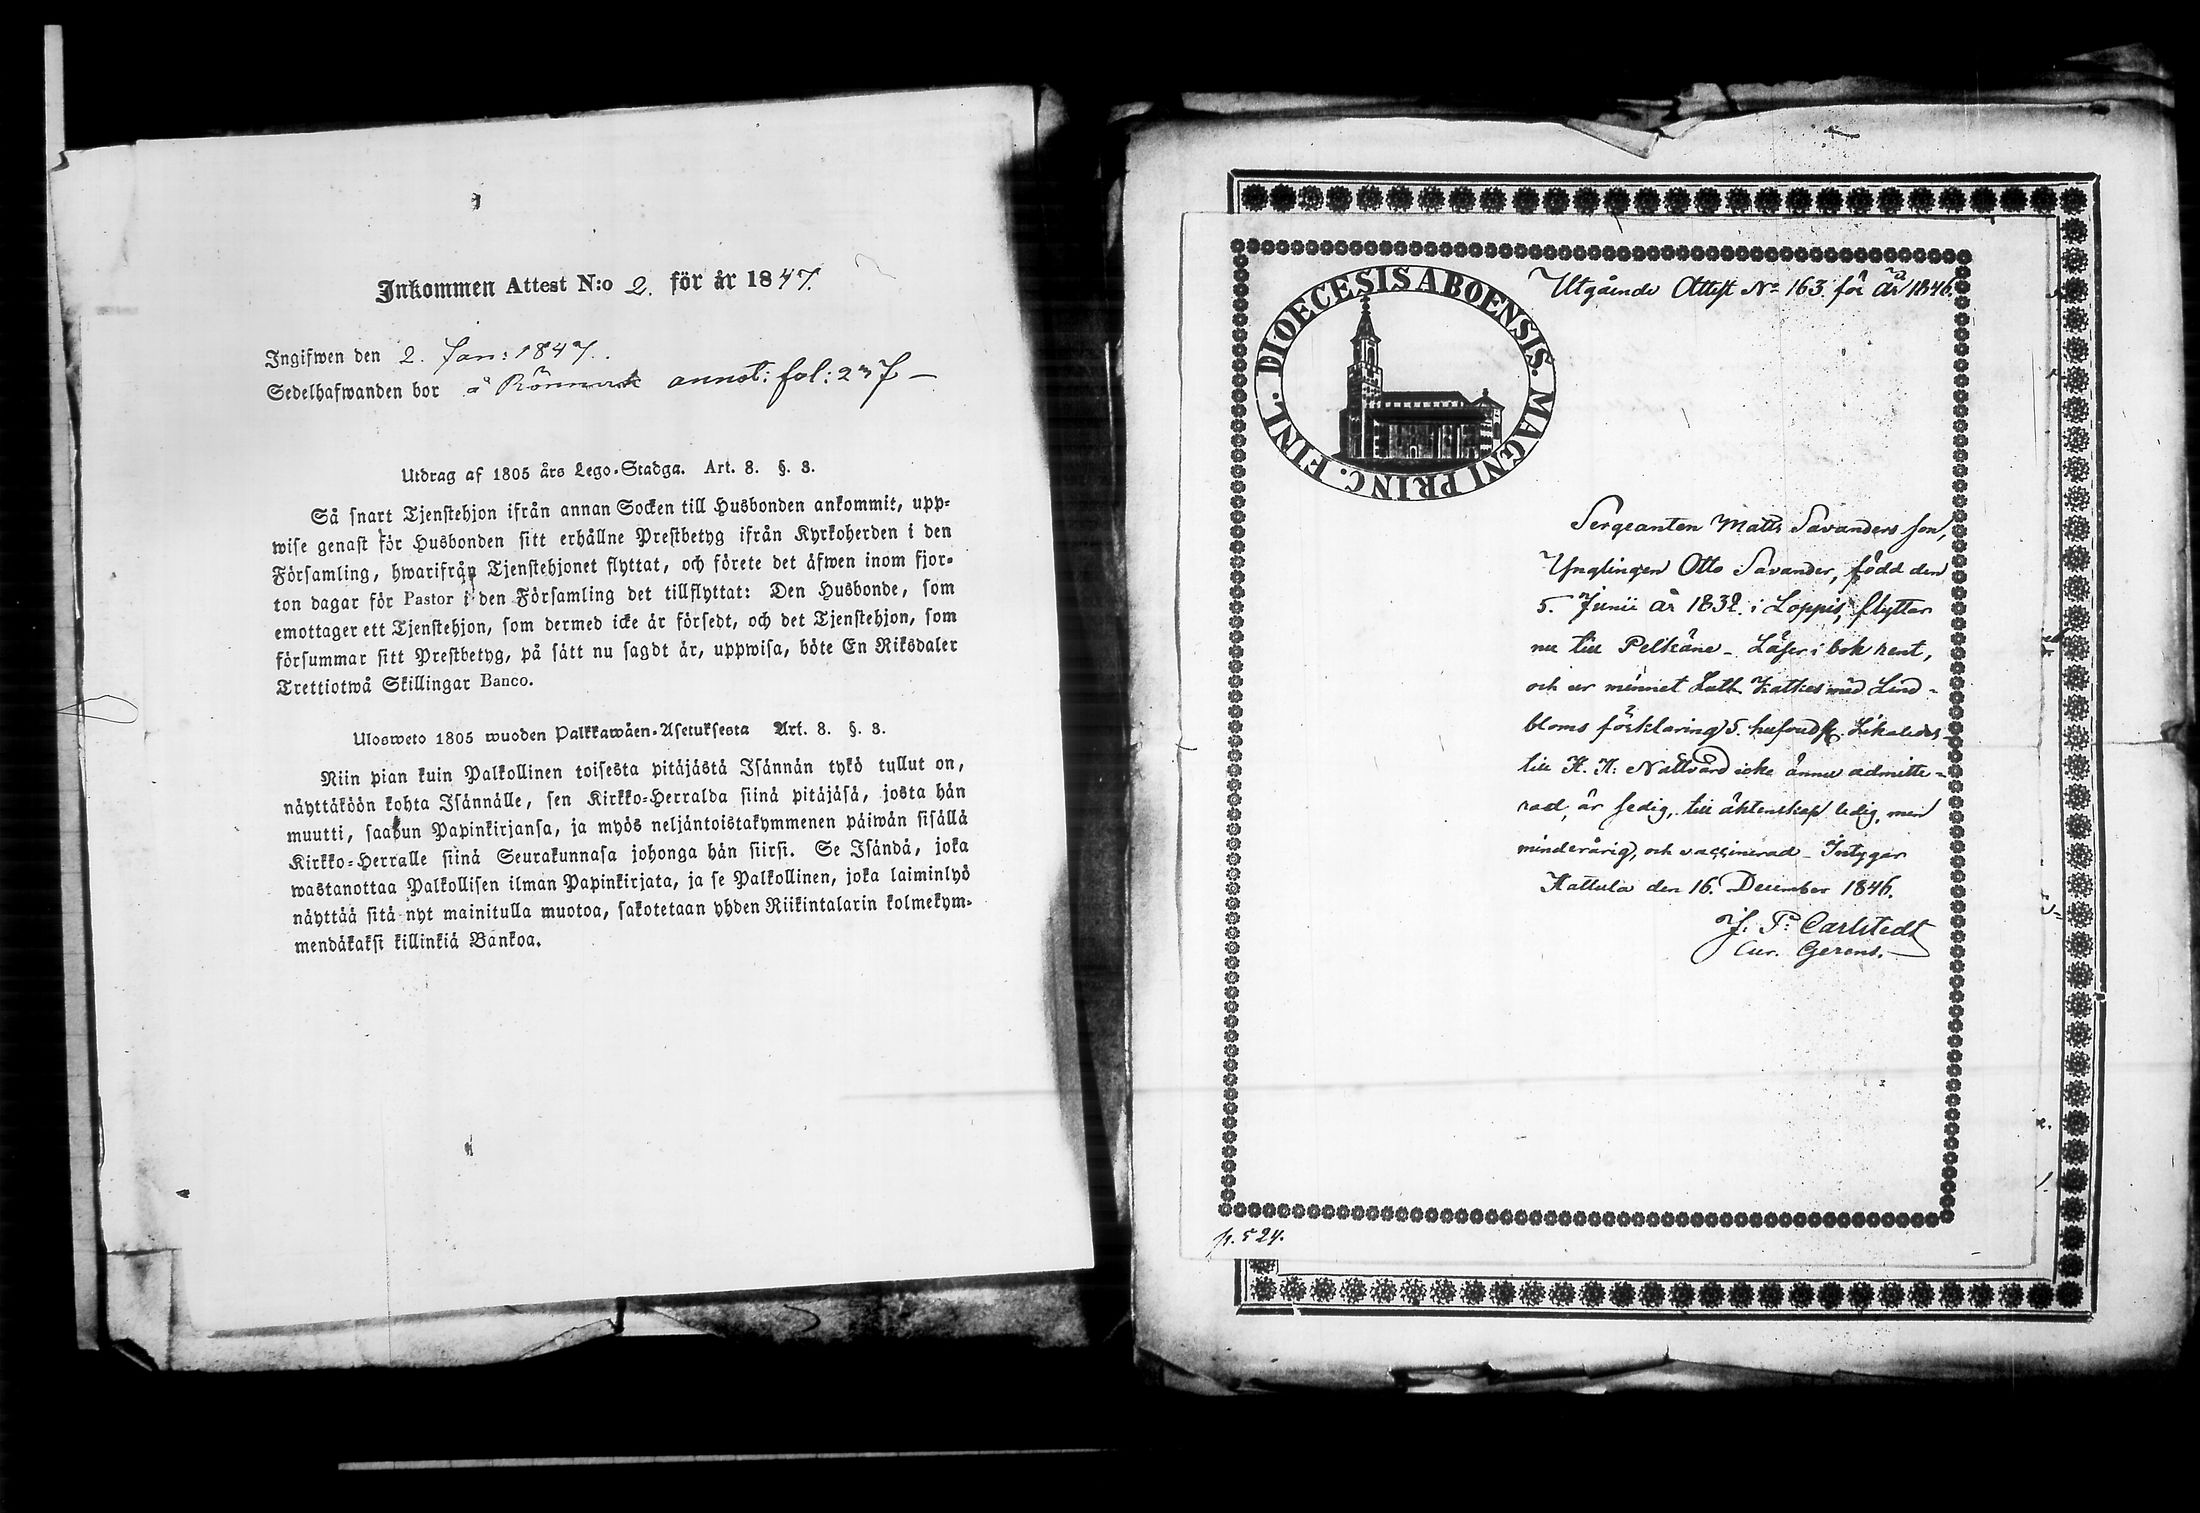 Inkommen Attest N:o 2. för år 1847.
Ingifwen den 2. Jan: 1847.
Sedelhafwanden bor å annot: fol: 237 —
Utdrag af 1805 års Lego-Stadga. Art. 8. §. 3.
Så snart Tjenstehjon ifrån annan Socken till Husbonden ankommit, upp-
wise genast för Husbonden sitt erhållne Prestbetyg ifrån Kyrkoherden i den
Församling, hwarifrån Tjenstehjonet flyttat, och förete det äfwen inom fjor-
ton dagar för Pastor i den Församling det tillflyttat: Den Husbonde, som
emottager ett Tjenstehjon, som dermed icke är försedt, och det Tjenstehjon, som
försummar sitt Prestbetyg, på sätt nu sagdt är, uppwisa, böte En Riksdaler
Trettiotwå Skillingar Banco.
Ulosweto 1805 wuoden Palkkawäen-Asetuksesta Art. 8. §. 3.
Niin pian kuin Palkollinen toisesta pitäjästä Isännän tykö tullut on,
näyttäköön kohta Isännälle, sen Kirkko-Herralda siinä pitäjäsä, josta hän
muutti, saadun Papinkirjansa, ja myös neljäntoistakymmenen päiwän sisällä
Kirkko-Herralle siinä Seurakunnasa johonga hän siirsi. Se Isändä, joka
wastanottaa Palkollisen ilman Papinkirjata, ja se Palkollinen, joka laiminlyö
näyttää sitä nyt mainitulla muotoa, sakotetaan yhden Riikintalarin kolmekym-
mendäkaksi killinkiä Bankoa.
DIOECESIS ABOENSIS. MAGNI PRINC. FINL.
Utgående Attest No 163 för år 1846.
Sergeanten Matts Savanders son,
Ynglingen Otto Savander, född den
5. Junii år 1832 i Loppis, flyttar
nu till Pelkäne - Läser i bok rent,
och ur minnet Luth. Katkes med Lind-
bloms förklaring, 5. hufvudst.
till H. H: Nattvard icke ännu admitte-
rad, är sedig, till äktenskap ledig, men
minderårig, och vaccinerad - Intygar
Hattula den 16. December 1846.
J. P: Carlstedt
Cur. Gerens.
p. 524.